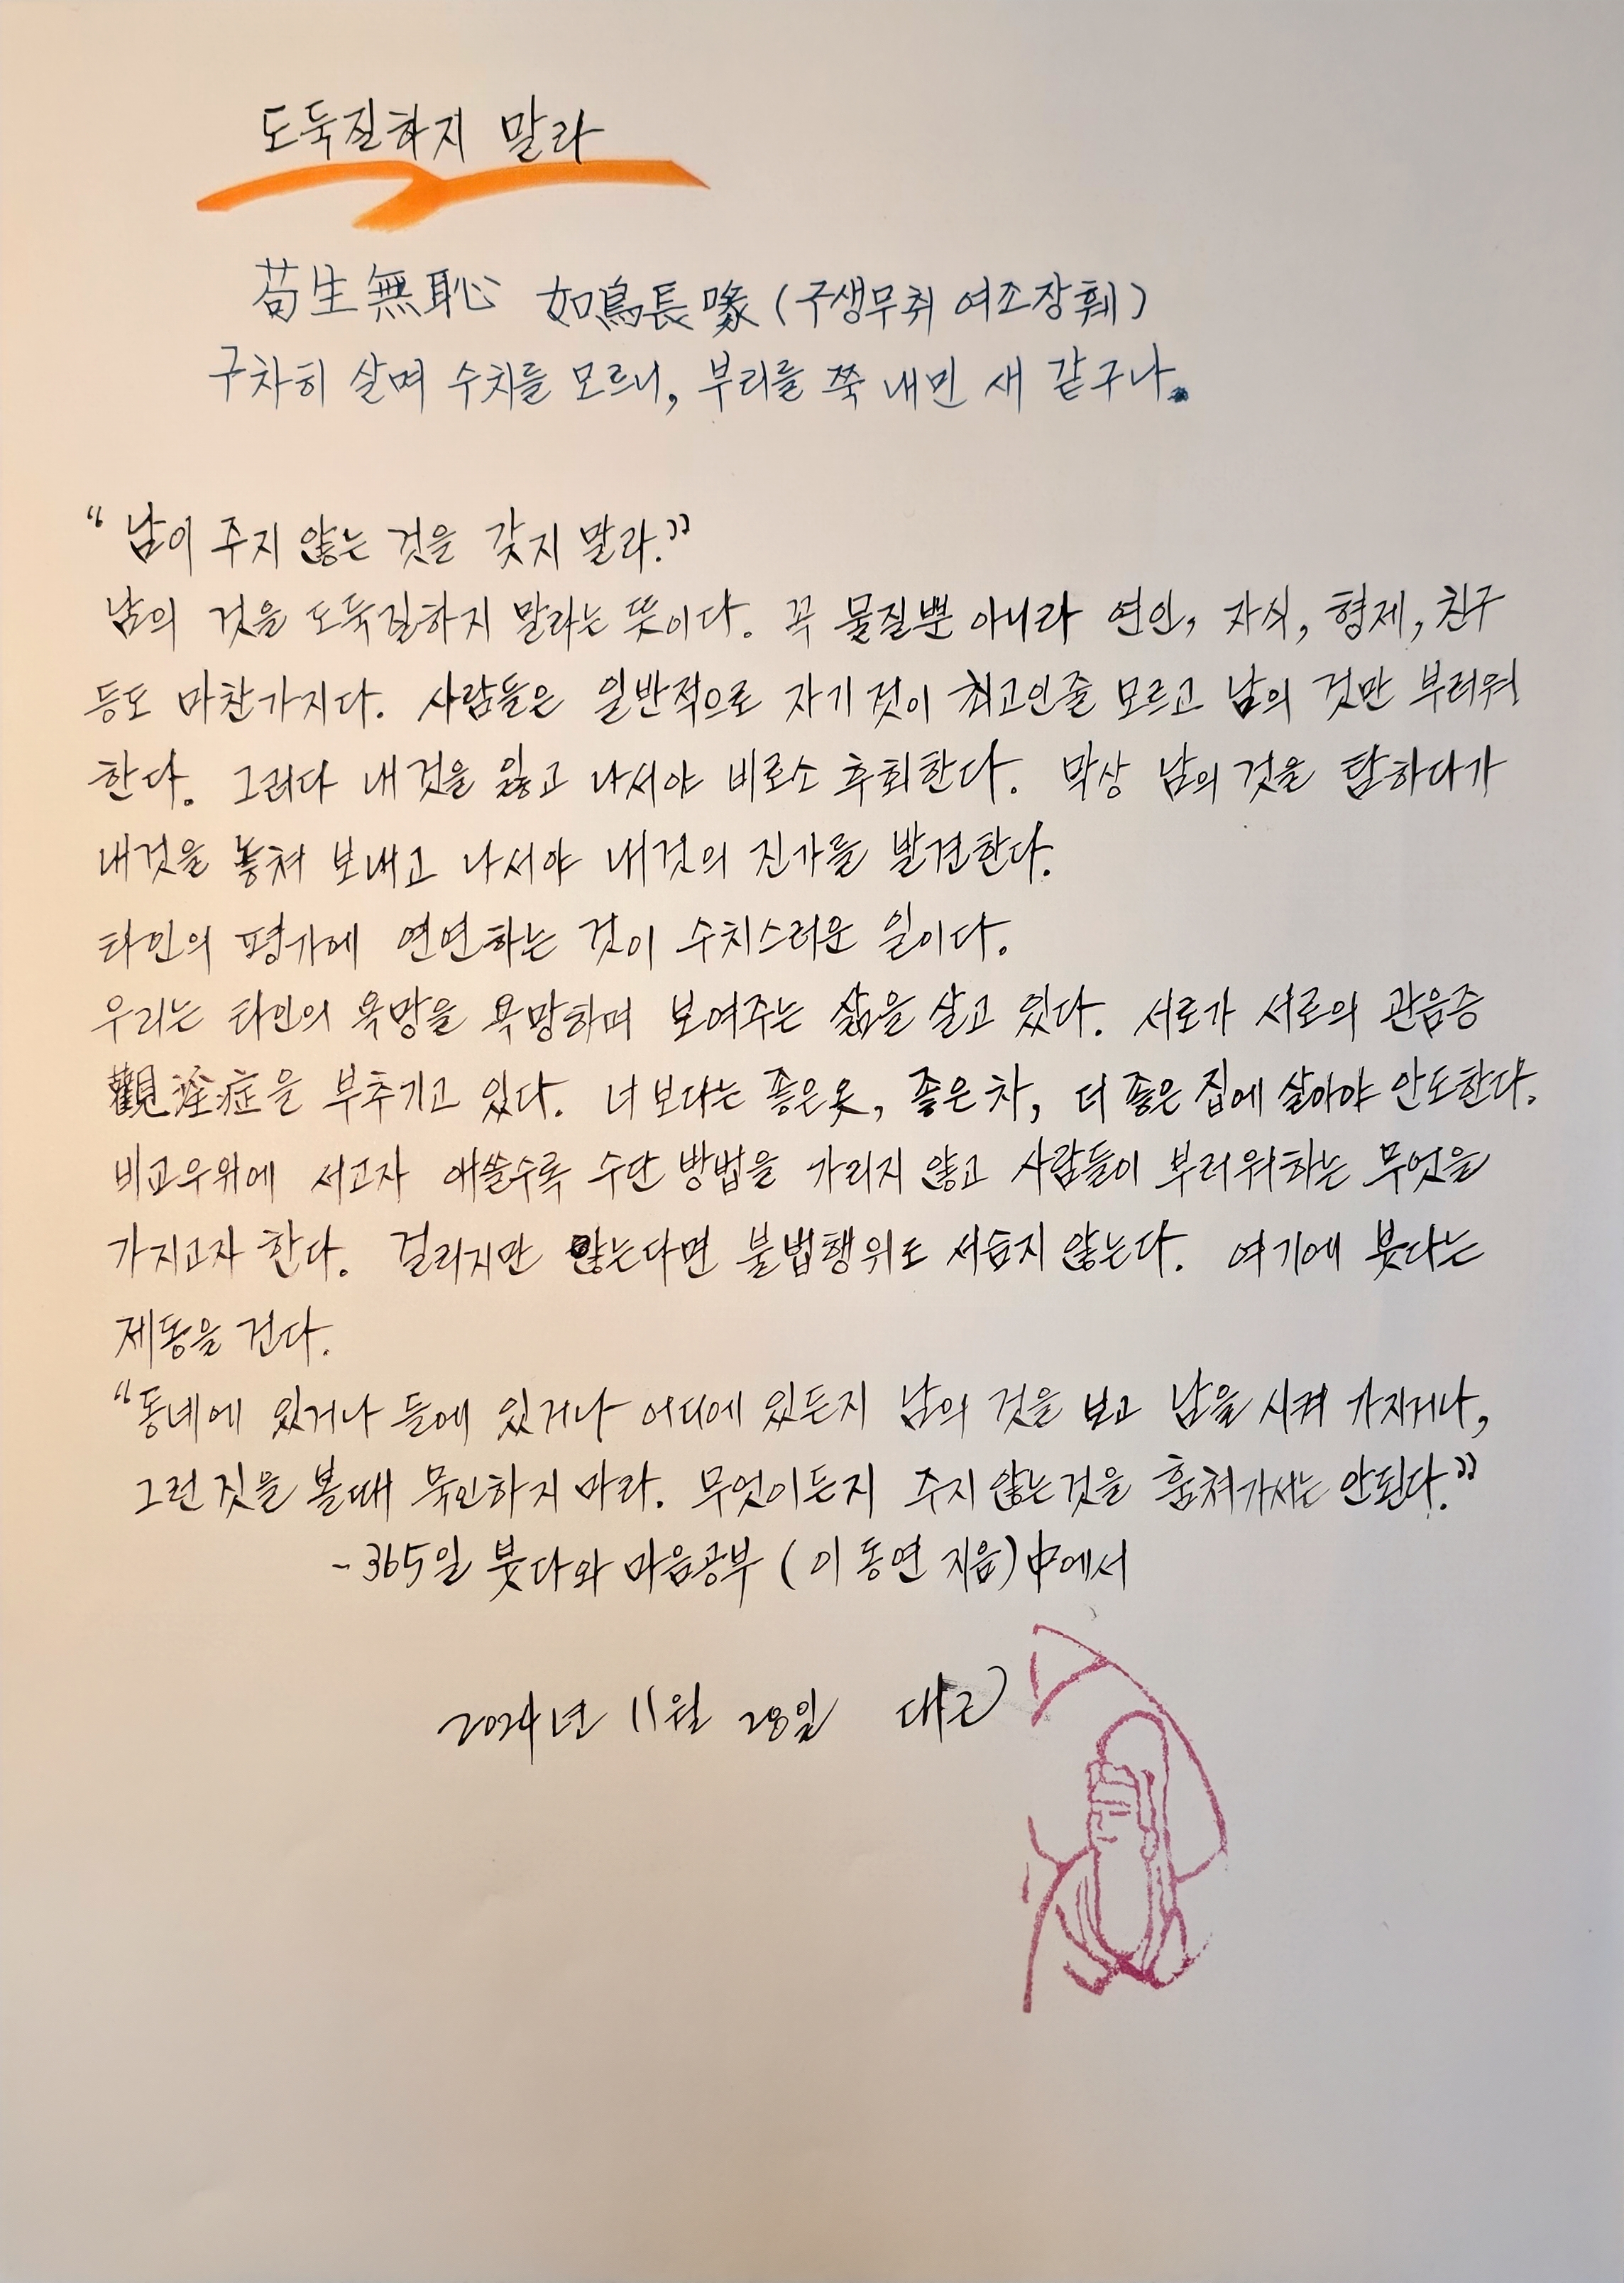 도둑질하지 말라
苟生無恥 如鳥長喙 (구생무취 여조장훼)
구차히 살며 수치를 모르니, 부리를 쭉 내민 새 같구나.
“남이 주지 않는 것을 갖지 말라.”
남의 것을 도둑질하지 말라는 뜻이다. 꼭 물질뿐 아니라 연인, 자식, 형제, 친구
등도 마찬가지다. 사람들은 일반적으로 자기것이 최고인줄 모르고 남의 것만 부러워
한다. 그러다 내것을 잃고 나서야 비로소 후회한다. 막상 남의 것을 탐하다가
내것을 놓쳐 보내고 나서야 내것의 진가를 발견한다.
타인의 평가에 연연하는 것이 수치스러운 일이다.
우리는 타인의 욕망을 욕망하며 보여주는 삶을 살고 있다. 서로가 서로의 관음증
觀淫症을 부추기고 있다. 너보다는 좋은옷, 좋은차, 더 좋은 집에 살아야 안도한다.
비교우위에 서고자 애쓸수록 수단 방법을 가리지 않고 사람들이 부러워하는 무엇을
가지고자 한다. 걸리지만 않는다면 불법행위도 서슴지 않는다. 여기에 붓다는
제동을 건다.
“동네에 있거나 들에 있거나 어디에 있든지 남의 것을 보고 남을 시켜 가지거나,
그런 짓을 볼때 묵인하지 마라. 무엇이든지 주지 않는것을 훔쳐가서는 안된다.”
- 365일 붓다와 마음공부 (이동연 지음) 中에서
2024년 11월 28일 대근